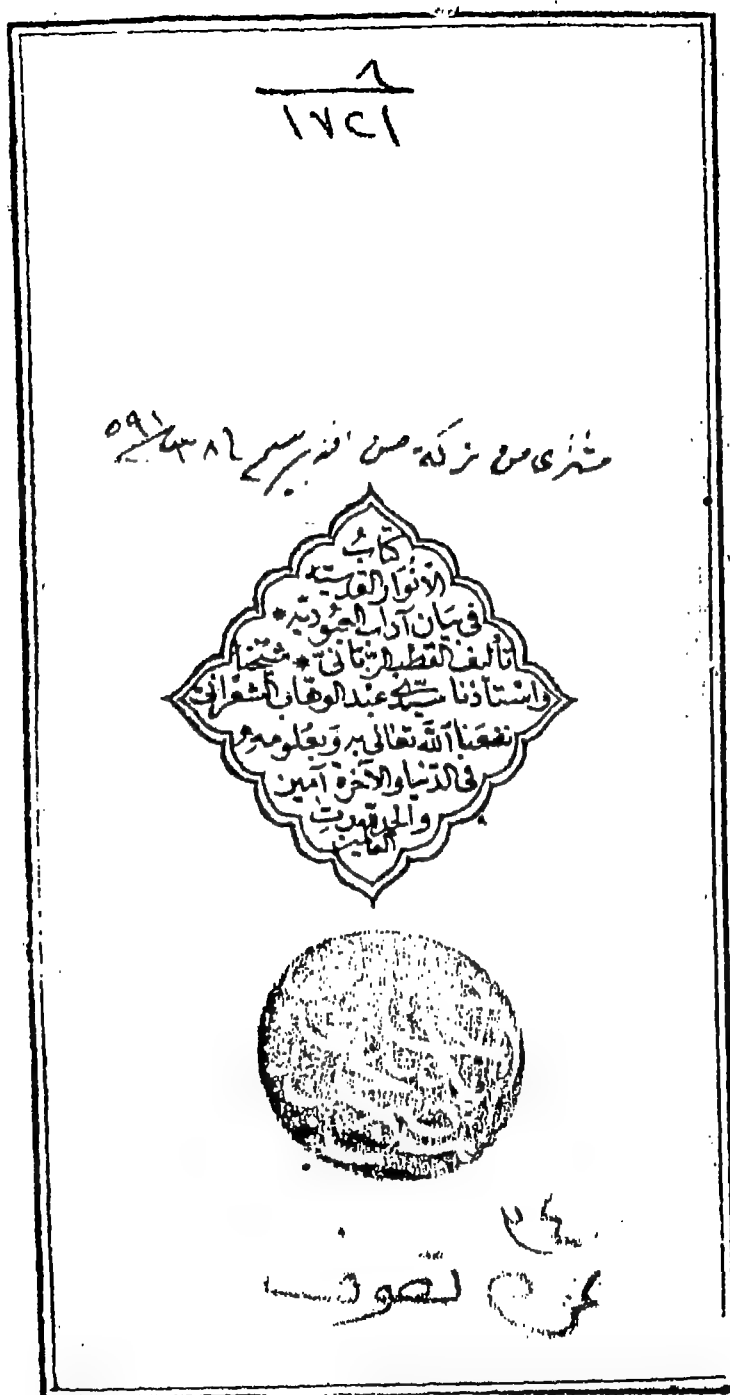 ٨
١٧٢١
مشترى من تركة حسن
كتاب
الأنوار القدسية
فى بيان آداب العبودية *
تأليف القطب الربانى * شيخنا
وأستاذنا سيدى عبد الوهاب الشعرانى
نفعنا الله تعالى به وبعلومه
فى الدنيا والآخرة آمين
والحمد لله رب
العالمين
تصوف